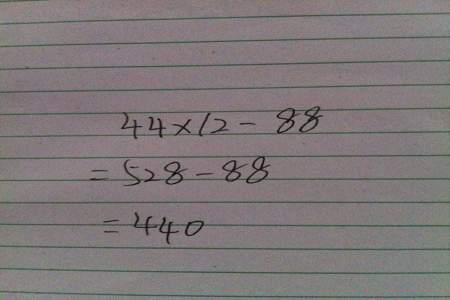 44×12-88
=528-88
=440